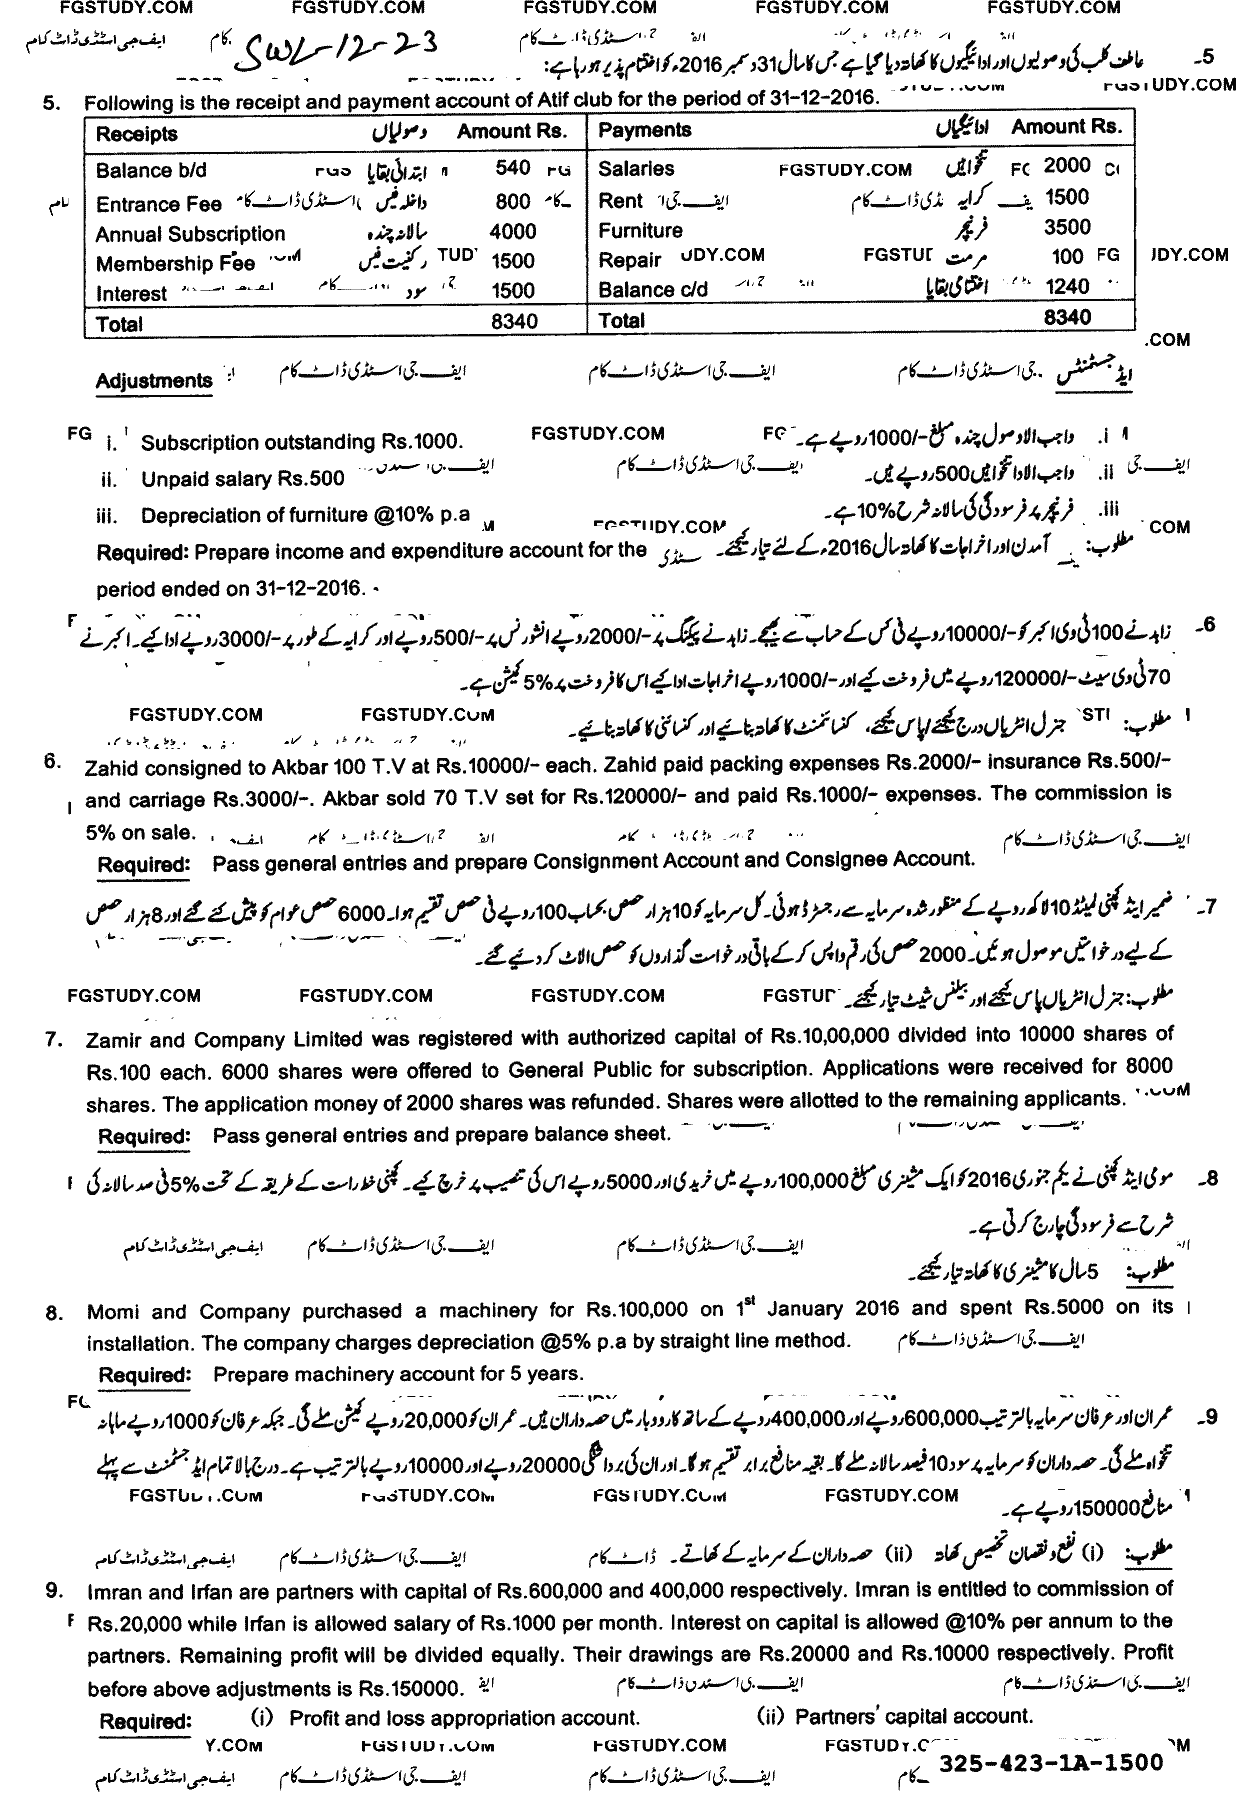 FGSTUDY.COM FGSTUDY.COM FGSTUDY.COM FGSTUDY.COM FGSTUDY.COM
ایف جی اسٹڈی ڈاٹ کام SWL-12-23
5- عاطف کلب کی وصولیوں اور ادائیگیوں کا کھاتہ دیا گیا ہے جس کا سال 31 دسمبر 2016ء کو اختتام پذیر ہو رہا ہے:
5. Following is the receipt and payment account of Atif club for the period of 31-12-2016. FGSTUDY.COM
Receipts وصولیاں Amount Rs. Payments ادائیگیاں Amount Rs.
Balance b/d ابتدائی بقایا 540 Salaries FGSTUDY.COM تنخواہیں 2000
Entrance Fee داخلہ فیس 800 Rent کرایہ 1500
Annual Subscription سالانہ چندہ 4000 Furniture فرنیچر 3500
Membership Fee رکنیت فیس 1500 Repair مرمت 100
Interest سود 1500 Balance c/d اختتامی بقایا 1240
Total 8340 Total 8340
.COM
Adjustments ایف جی اسٹڈی ڈاٹ کام ایف جی اسٹڈی ڈاٹ کام جی اسٹڈی ڈاٹ کام ایڈجسٹمنٹس
FG i. Subscription outstanding Rs.1000. FGSTUDY.COM i. واجب الادوصول چندہ مبلغ -/1000 روپے ہے۔
ii. Unpaid salary Rs.500 ایف جی اسٹڈی ڈاٹ کام ii. واجب الادا تنخواہیں 500 روپے ہیں۔
iii. Depreciation of furniture @10% p.a FGSTUDY.COM iii. فرنیچر پر فرسودگی کی سالانہ شرح 10% ہے۔ COM
Required: Prepare income and expenditure account for the مطلوب: آمدن اور اخراجات کا کھاتہ سال 2016ء کے لئے تیار کیجئے۔
period ended on 31-12-2016.
6- زاہد نے 100 ٹی وی اکبر کو -/10000 روپے فی کس کے حساب سے بھیجے۔ زاہد نے پیکنگ پر -/2000 روپے انشورنس پر -/500 روپے اور کرایہ کے طور پر -/3000 روپے ادا کیے۔ اکبر نے
70 ٹی وی سیٹ -/120000 روپے میں فروخت کیے اور -/1000 روپے اخراجات ادا کیے اس کا فروخت پر 5% کمیشن ہے۔
FGSTUDY.COM FGSTUDY.COM مطلوب: جنرل انٹریاں درج کیجئے/پاس کیجئے، کنسائمنٹ کا کھاتہ بنائیے اور کنسائنی کا کھاتہ بنائیے۔
6. Zahid consigned to Akbar 100 T.V at Rs.10000/- each. Zahid paid packing expenses Rs.2000/- insurance Rs.500/-
and carriage Rs.3000/-. Akbar sold 70 T.V set for Rs.120000/- and paid Rs.1000/- expenses. The commission is
5% on sale. ایف جی اسٹڈی ڈاٹ کام
Required: Pass general entries and prepare Consignment Account and Consignee Account.
7- ضمیر اینڈ کمپنی لمیٹڈ 10 لاکھ روپے کے منظور شدہ سرمایہ سے رجسٹرڈ ہوئی۔ کل سرمایہ کو 10 ہزار حصص بحساب 100 روپے فی حصص تقسیم ہوا۔ 6000 حصص عوام کو پیش کئے گئے اور 8 ہزار حصص
کے لیے درخواستیں موصول ہوئیں۔ 2000 حصص کی رقم واپس کر کے باقی درخواست گذاروں کو حصص الاٹ کر دیئے گئے۔
FGSTUDY.COM FGSTUDY.COM FGSTUDY.COM مطلوب: جنرل انٹریاں پاس کیجئے اور بیلنس شیٹ تیار کیجئے۔
7. Zamir and Company Limited was registered with authorized capital of Rs.10,00,000 divided into 10000 shares of
Rs.100 each. 6000 shares were offered to General Public for subscription. Applications were received for 8000
shares. The application money of 2000 shares was refunded. Shares were allotted to the remaining applicants.
Required: Pass general entries and prepare balance sheet.
8- مومی اینڈ کمپنی نے یکم جنوری 2016 کو ایک مشینری مبلغ 100,000 روپے میں خریدی اور 5000 روپے اس کی تنصیب پر خرچ کیے۔ کمپنی خط راست کے طریقہ کے تحت 5% فی صد سالانہ کی
شرح سے فرسودگی چارج کرتی ہے۔
ایف جی اسٹڈی ڈاٹ کام ایف جی اسٹڈی ڈاٹ کام ایف جی اسٹڈی ڈاٹ کام
مطلوب: 5 سال کا مشینری کا کھاتہ تیار کیجئے۔
8. Momi and Company purchased a machinery for Rs.100,000 on 1st January 2016 and spent Rs.5000 on its
installation. The company charges depreciation @5% p.a by straight line method. ایف جی اسٹڈی ڈاٹ کام
Required: Prepare machinery account for 5 years.
9- عمران اور عرفان سرمایہ بالترتیب 600,000 روپے اور 400,000 روپے کے ساتھ کاروبار میں حصہ داران ہیں۔ عمران کو 20,000 روپے کمیشن ملے گی۔ جبکہ عرفان کو 1000 روپے ماہانہ
تنخواہ ملے گی۔ حصہ داران کو سرمایہ پر سود 10 فیصد سالانہ ملے گا۔ بقیہ منافع برابر تقسیم ہوگا۔ اور ان کی برداشتگی 20000 روپے اور 10000 روپے بالترتیب ہے۔ درج بالا تمام ایڈجسٹمنٹ سے پہلے
FGSTUDY.COM FGSTUDY.COM FGSTUDY.COM FGSTUDY.COM منافع 150000 روپے ہے۔
ایف جی اسٹڈی ڈاٹ کام ایف جی اسٹڈی ڈاٹ کام ڈاٹ کام مطلوب: (i) نفع و نقصان تخصیص کھاتہ (ii) حصہ داران کے سرمایہ کے کھاتے۔
9. Imran and Irfan are partners with capital of Rs.600,000 and 400,000 respectively. Imran is entitled to commission of
Rs.20,000 while Irfan is allowed salary of Rs.1000 per month. Interest on capital is allowed @10% per annum to the
partners. Remaining profit will be divided equally. Their drawings are Rs.20000 and Rs.10000 respectively. Profit
before above adjustments is Rs.150000. ایف جی اسٹڈی ڈاٹ کام ایف جی اسٹڈی ڈاٹ کام
Required: (i) Profit and loss appropriation account. (ii) Partners' capital account.
Y.COM FGSTUDY.COM FGSTUDY.COM FGSTUDY.C
ایف جی اسٹڈی ڈاٹ کام ایف جی اسٹڈی ڈاٹ کام ایف جی اسٹڈی ڈاٹ کام 325-423-1A-1500